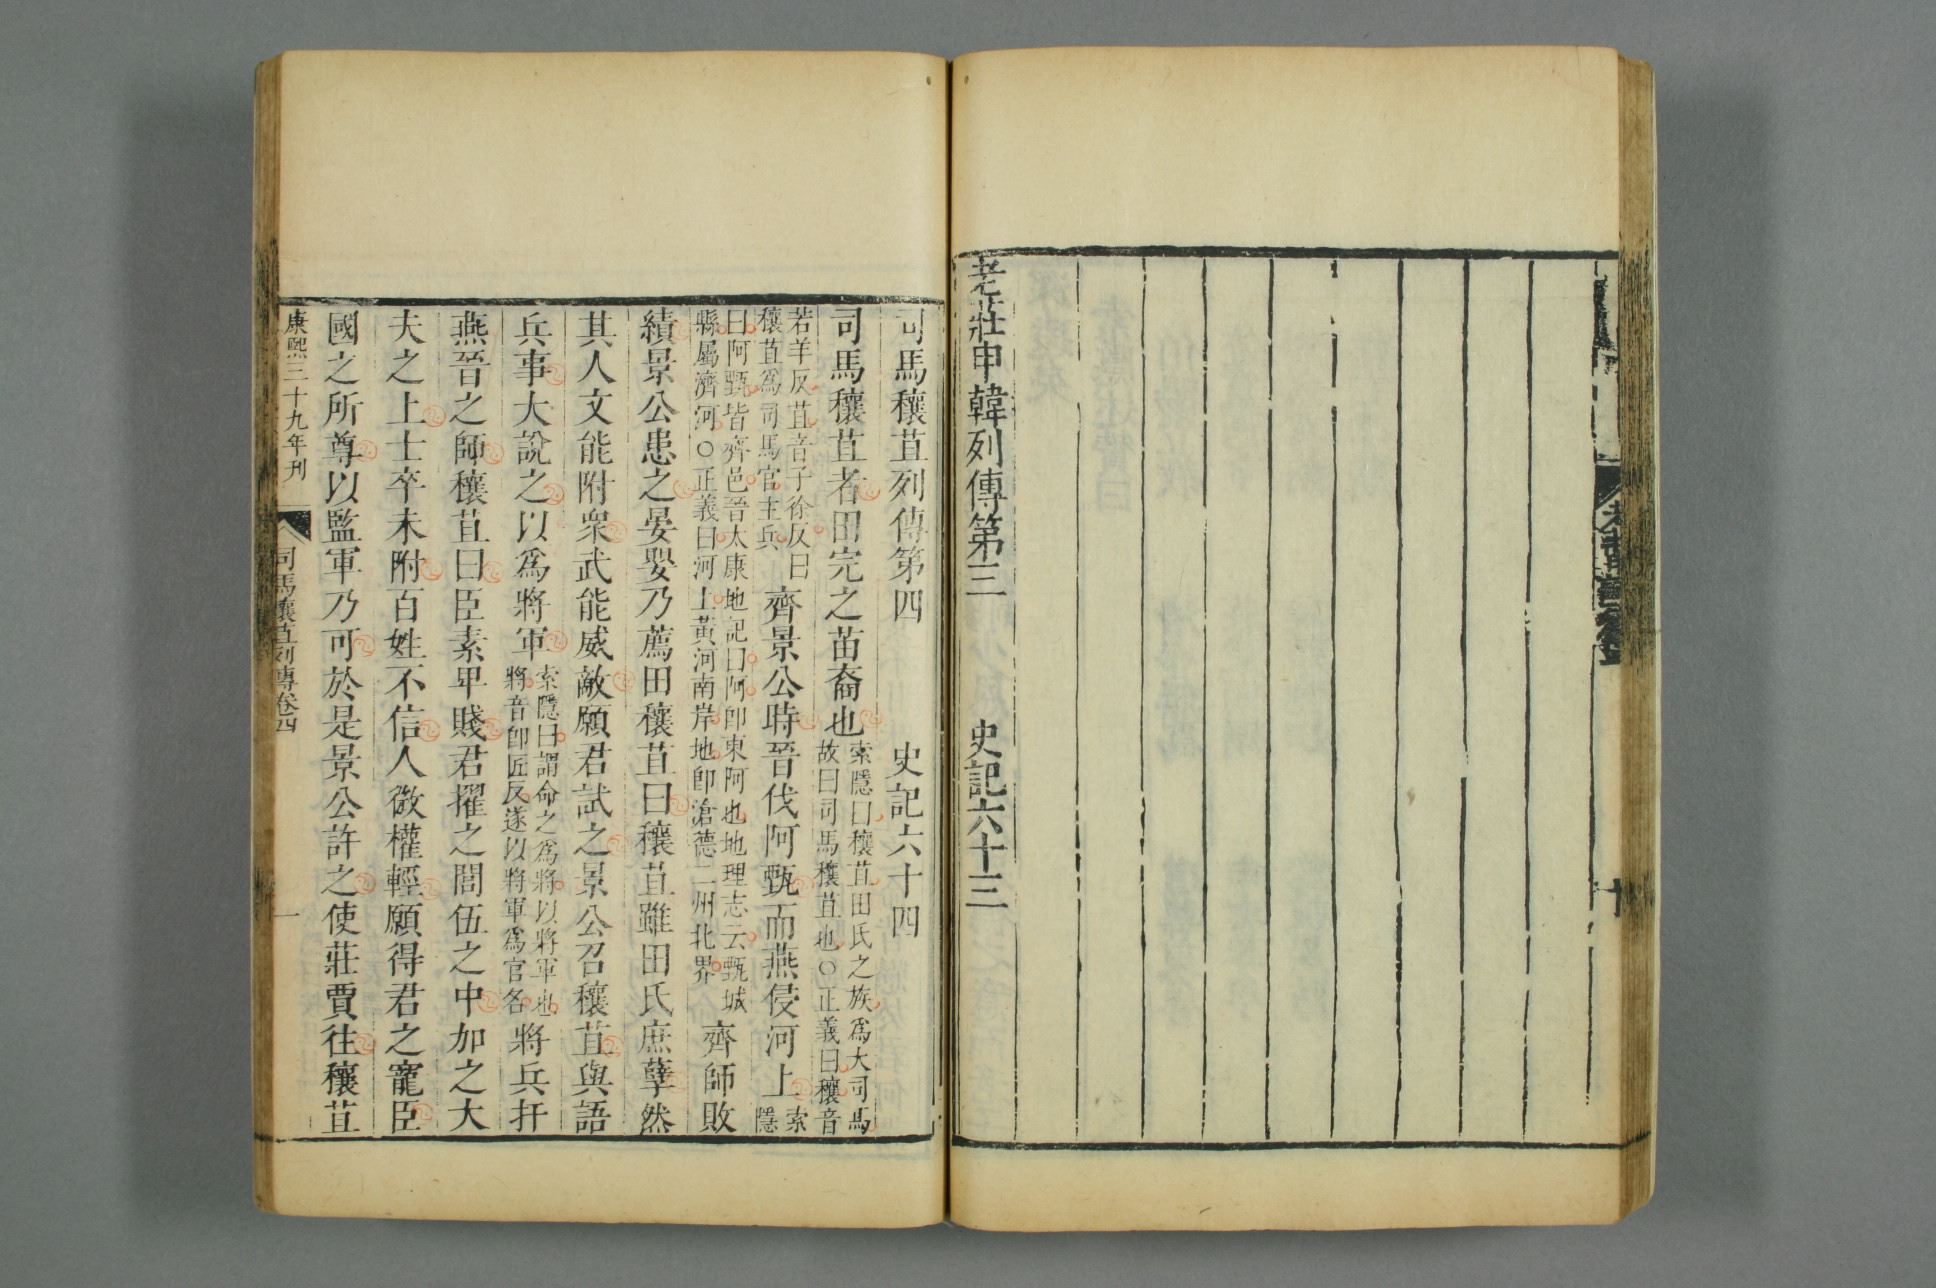 老莊申韓列傳第三　史記六十三
司馬穰苴列傳第四　史記六十四
司馬穰苴者田完之苗裔也
索隱曰穰苴田氏之族爲大司馬
故曰司馬穰苴也○正義曰穰音
若羊反苴音子徐反曰
穰苴爲司馬官主兵
齊景公時晉伐阿甄而燕侵河上
索
隱
曰阿甄皆齊邑晉大康地記曰阿卽東阿也地理志云甄城
縣屬濟河○正義曰河上黃河南岸地卽滄德二州北界
齊師敗
績景公患之晏嬰乃薦田穰苴曰穰苴雖田氏庶孽然
其人文能附衆武能威敵願君試之景公召穰苴與語
兵事大說之以爲將軍
索隱曰謂命之爲將以將軍也
將音卽匠反遂以將軍爲官名
將兵扞
燕晉之師穰苴曰臣素卑賤君擢之閭伍之中加之大
夫之上士卒未附百姓不信人微權輕願得君之寵臣
國之所尊以監軍乃可於是景公許之使莊賈往穰苴
康熙三十九年刊
司馬穰苴列傳卷四
一